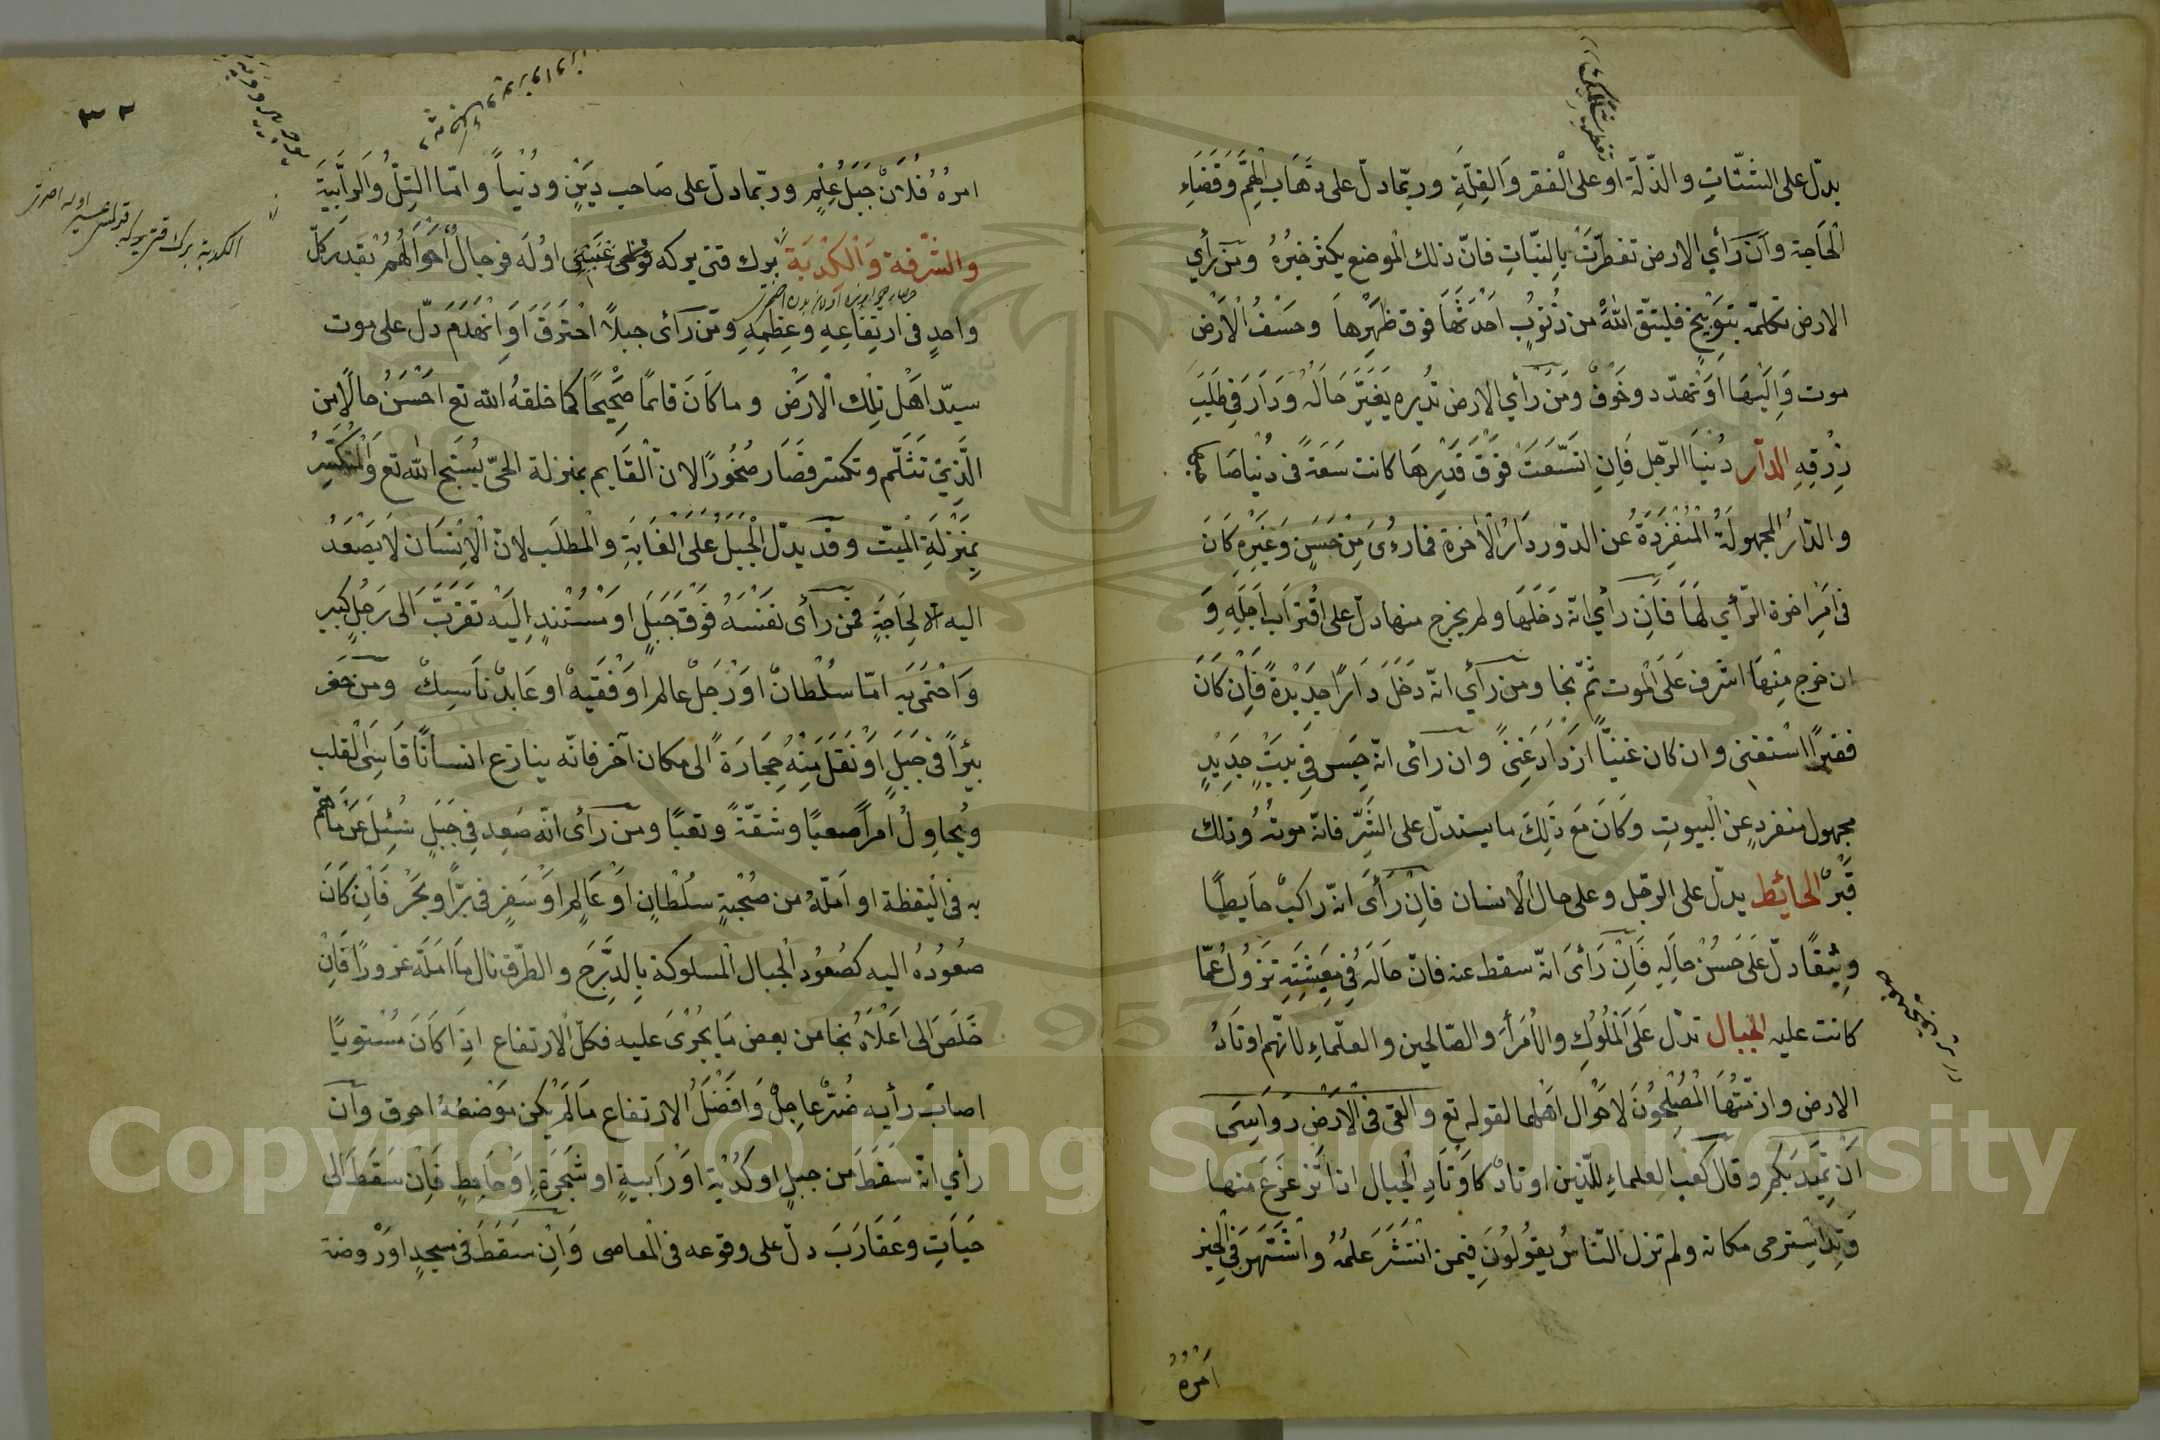 يدلّ على الشتات والذلّة او على الفقر والقلّة وربّما دلّ على ذهاب الهمّ وقضاء
الحاجة وان رأي الارض تفطرت بالنبات فانّ ذلك الموضع يكثر خيره ومن رأي
الارض تكلمه بتوبيخ فليتق الله من ذنوب احدثها فوق ظهرها وخسف الارض
موت واليها او تهدّد وخوف ومن رأي الارض تديره يغير حاله ودار في طلب
رزقه الدار دنيا الرجل فان اتسعت فوق قدرها كانت سعة في دنيا صاحبها
والدار المجهولة المنفردة عن الدور دار الاخرة فما رءى من حسن وغيره كان
في امر اخرة الرأي لها فان رأي انه دخلها ولم يخرج منها دل على اقتراب اجله و
ان خرج منها اشرف على الموت ثم نجا ومن رأي انه دخل دارا جديدة فان كان
فقيرا استغنى وان كان غنيا ازداد غنى وان رأى انه حبس في بيت جديد
مجهول منفرد عن البيوت وكان مع ذلك ما يستدل على الشر فانه موته وذلك
قبر الحائط يدل على الرجل وعلى حال الانسان فان رأى انه راكب حايطا
وثيقا دل على حسن حاله فان رأى انه سقط عنه فان حاله في معيشته تزول عما
كانت عليه الجبال تدل على الملوك والامراء والصالحين والعلماء لانهم اوتاد
الارض وازمتها المصلحون لاحوال اهلها لقوله تع والقى في الارض رواسى
ان تميد بكم وقال كعب العلماء للدين اوتاد كاوتاد الجبال اذا تزعزع منها
وتد استرمى مكانه ولم تزل الناس يقولون فيمن انتشر علمه واشتهر في الخير
امره
٣٢
امره فلان جبل علم وربما دل على صاحب دين ودنيا واما التل والرابية
والشرفة والكدية اوله فرجال احوالهم بقدر كل
واحد في ارتفاعه وعظمه ومن رأى جبلا احترق او انهدم دل على موت
سيد اهل تلك الارض وما كان قائما صحيحا كما خلقه الله تع احسن حالا من
الذي تثلم وتكسر فصار صخورا لان القايم بمنزلة الحى يسبح الله تع والمتكسر
بمنزلة الميت وقد يدل الجبل على الغاية والمطلب لان الانسان لا يصعد
اليه الا لحاجة فمن رأى نفسه فوق جبل او مستند اليه تقرب الى رجل كبير
واحتمى به اما سلطان او رجل عالم او فقيه او عابد ناسك ومن حفر
بئرا في جبل او نقل منه حجارة الى مكان آخر فانه ينازع انسانا قاسى القلب
ويحاول امرا صعبا وشقة وتعبا ومن رأى انه صعد في جبل سئل عما هم
به في اليقظة او امله من صحبة سلطان او عالم او سفر في بر او بحر فان كان
صعوده اليه كصعود الجبال المسلوكة بالدرج والطرق نال ما امله عزورا فان
خلص الى اعلاه نجا من بعض ما يجرى عليه فكل الارتفاع اذا كان مستويا
اصاب رأيه ضر عاجل وافضل الارتفاع ما لم يكن موضعه احرق وان
رأي انه سقط من جبل او كدية او رابية او شجرة او حايط فان سقط الى
حيات وعقارب دل على وقوعه في المعاصى وان سقط في مسجد او روضة
Copyright © King Saud University
1957